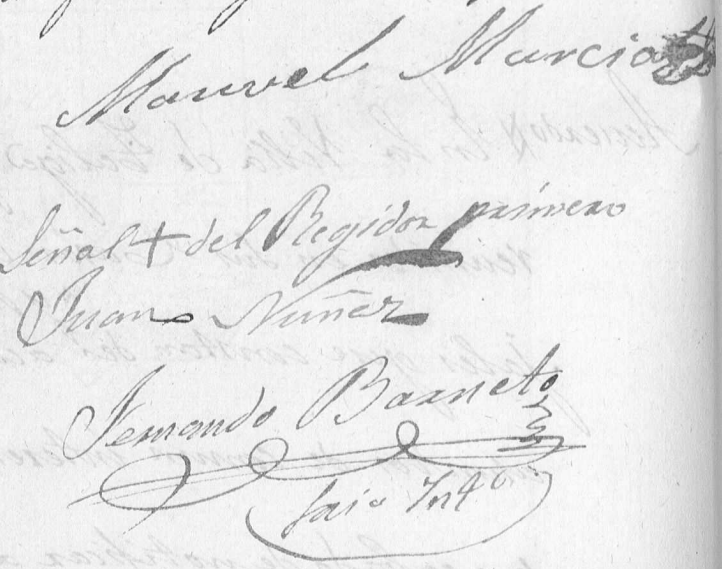 Manuel Murcia
Señal + del Regidor primero
Juan Nuñez
Fernando Barneto
Srio Int⁰